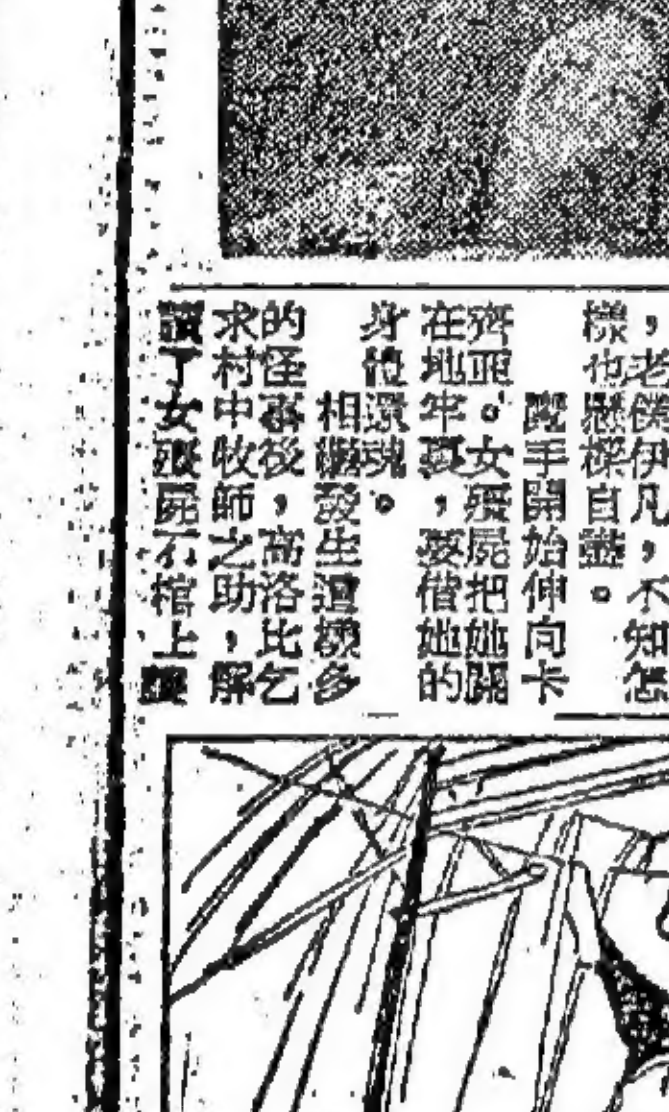 ，老僕伊凡，不知怎
樣也懸樑自盡。
魔手開始伸向卡
齊亞。女殭屍把她關
在地牢裏，要借她的
身體還魂。
相繼發生這樣多
的怪事後，高洛比乞
求村中牧師之助，解
讀了女殭屍石棺上